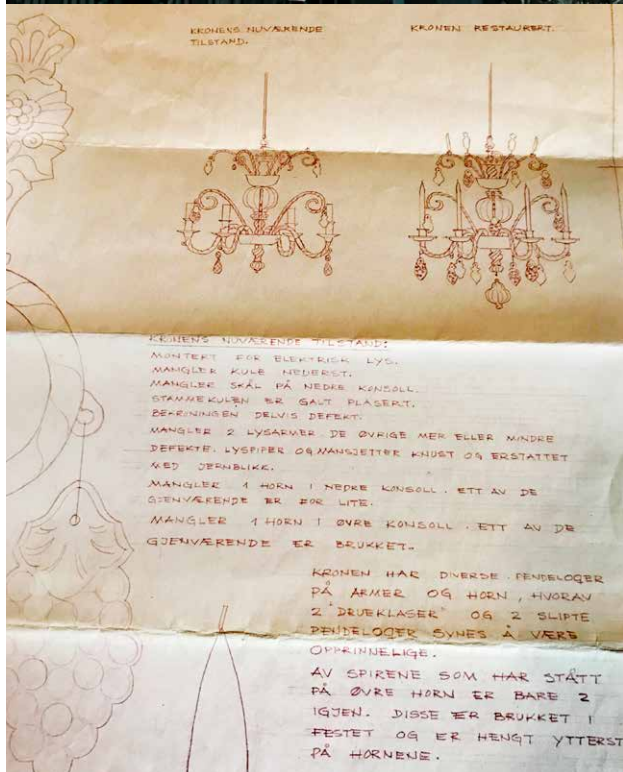 KRONENS NUVÆRENDE
TILSTAND.
KRONEN RESTAURERT.
KRONENS NUVÆRENDE TILSTAND:
MONTERT FOR ELEKTRISK LYS.
MANGLER KULE NEDERST.
MANGLER SKÅL PÅ NEDRE KONSOLL.
STAMMEKULEN ER GALT PLASERT.
BEKRONINGEN DELVIS DEFEKT.
MANGLER 2 LYSARMER. DE ØVRIGE MER ELLER MINDRE
DEFEKTE. LYSPIPER OG MANSJETTER KNUST OG ERSTATTET
MED JERNBLIKK.
MANGLER 1 HORN I NEDRE KONSOLL. ETT AV DE
GJENVÆRENDE ER FOR LITE.
MANGLER 1 HORN I ØVRE KONSOLL. ETT AV DE
GJENVÆRENDE ER BRUKKET.
KRONEN HAR DIVERSE PENDELOGER
PÅ ARMER OG HORN, HVORAV
2 "DRUEKLASER" OG 2 SLIPTE
PENDELOGER SYNES Å VÆRE
OPPRINNELIGE.
AV SPIRENE SOM HAR STÅTT
PÅ ØVRE HORN ER BARE 2
IGJEN. DISSE ER BRUKKET I
FESTET OG ER HENGT YTTERST
PÅ HORNENE.